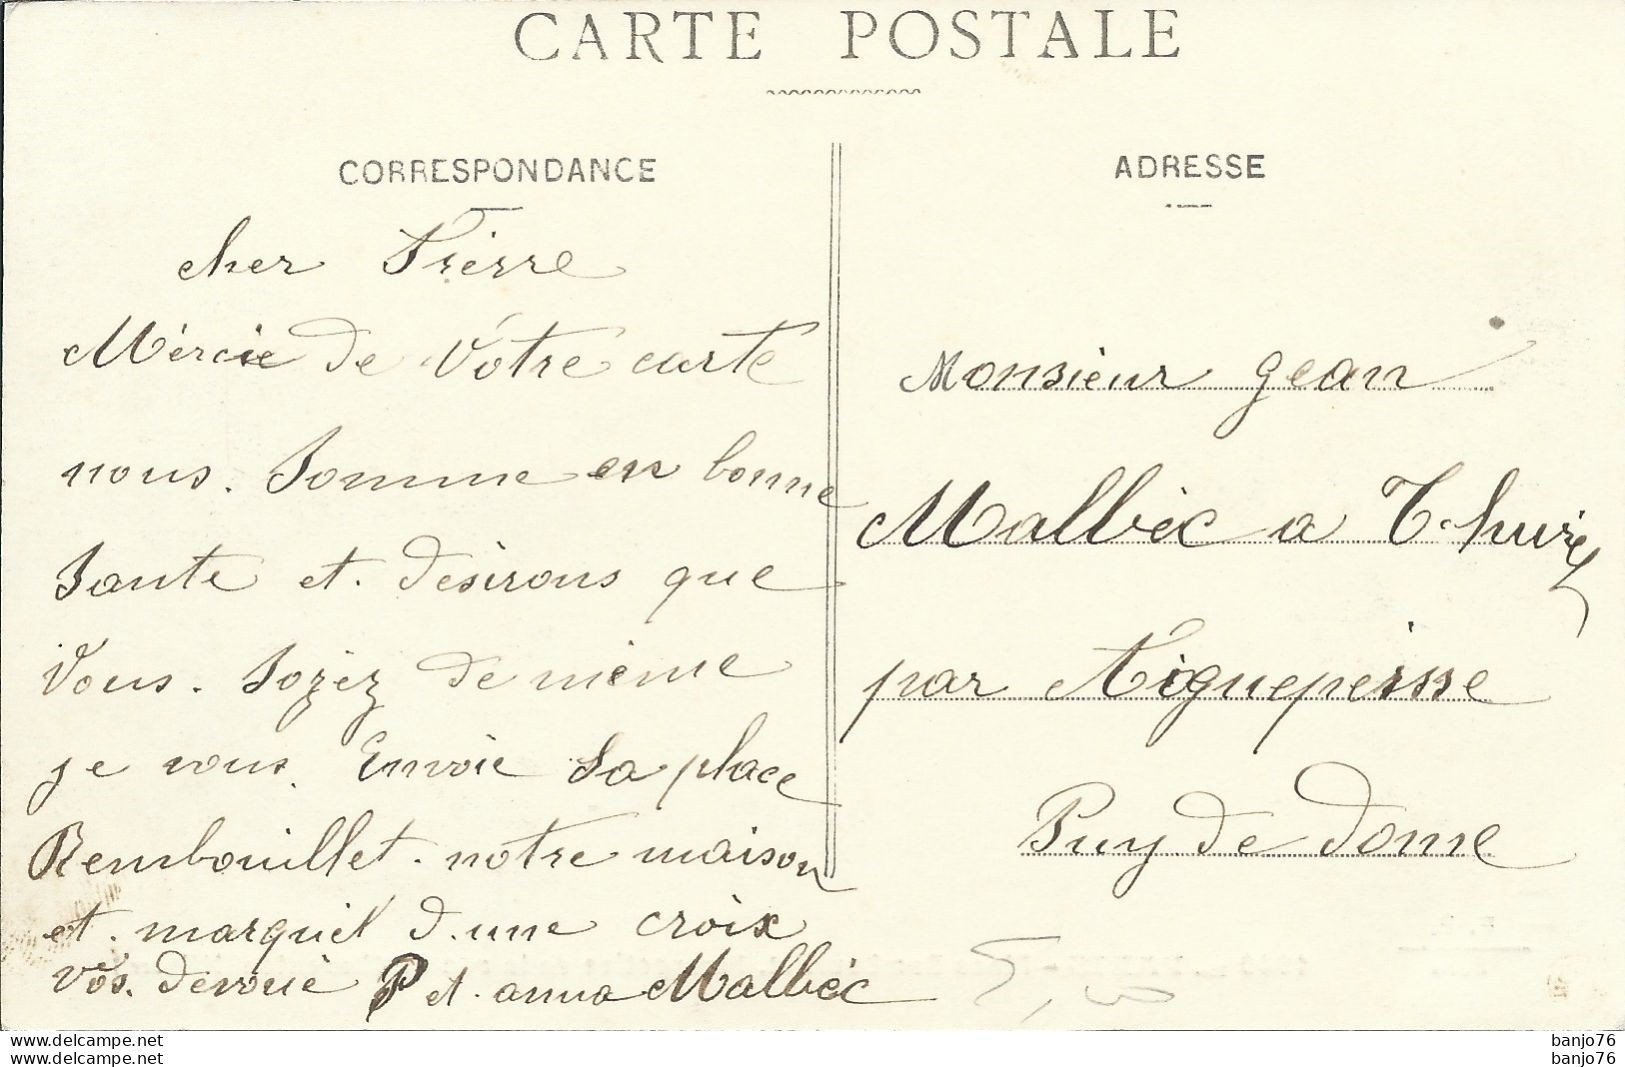 CARTE POSTALE
CORRESPONDANCE
cher Frère
Mèrcie de Votre carte
nous. Somme en bonne
Sante et. desirons que
Vous. Soyez de mème
je vous. Envoie Sa place
Rembouillet. notre maison
et. marquet d.une croix
vos. devoué P et. anna Malbéc
ADRESSE
Monsieur gean
Malbéc a Thuret
par Aigueperse
Puy de dome
5,00
www.delcampe.net
www.delcampe.net
banjo76
banjo76